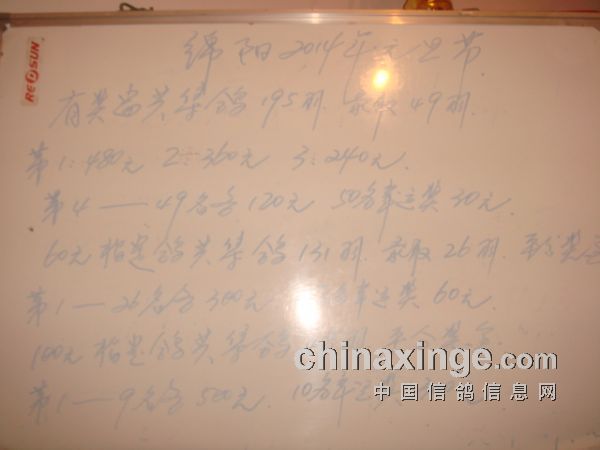 RE SUN
绵阳2014年元旦节
有奖 共集鸽195羽 录取49羽
第1:480元 2:360元 3:240元.
第4——49名各120元 50名幸运奖30元.
60元指定鸽共集鸽131羽.录取26羽.
第1——26名各300元 幸运奖60元.
100元指定鸽共集鸽
第1——9名各500元. 10名幸运奖
chinaxinge.com
中国信鸽信息网